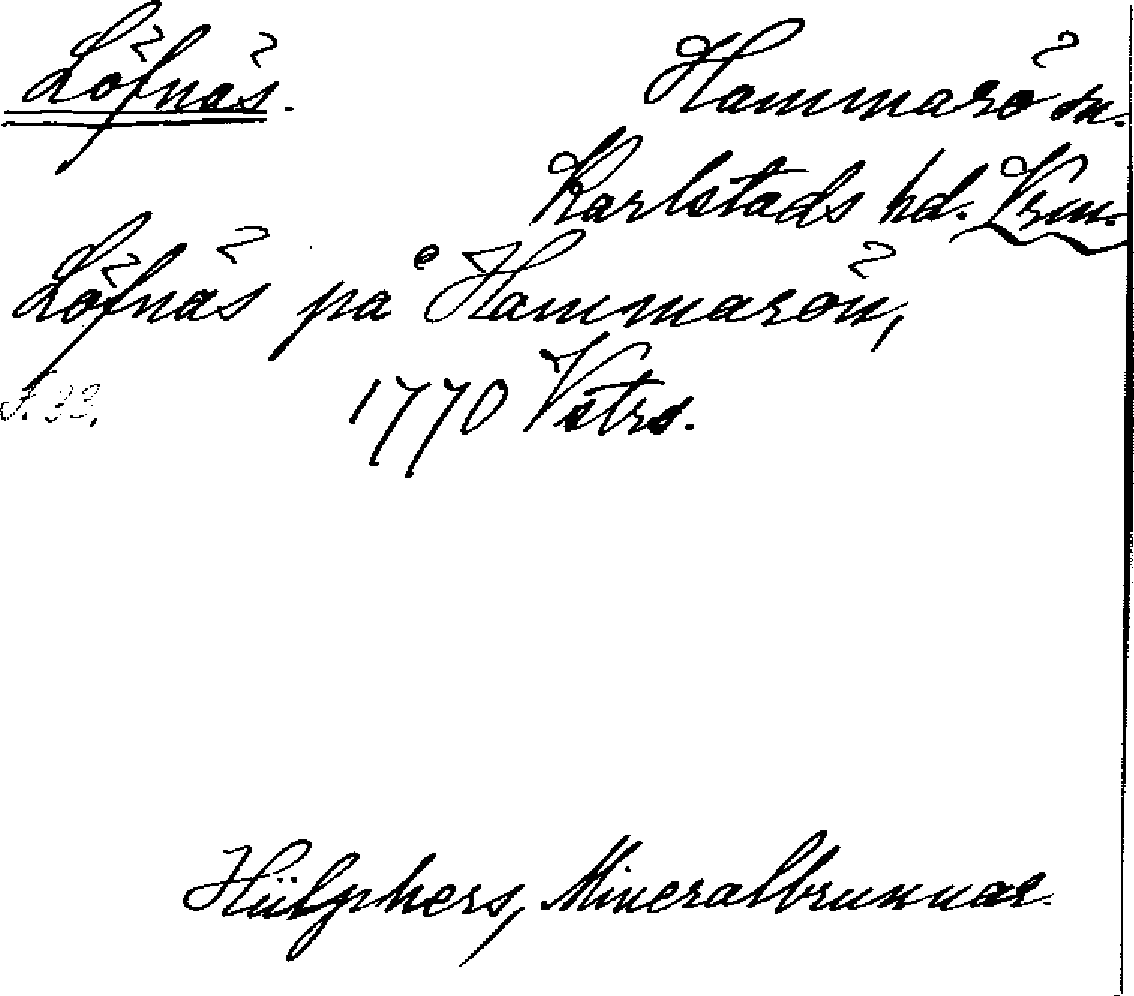 Löfnäs.
Hammarö sn.
Karlstads hd. Vrm.
Löfnäs på Hammarön,
1770 Vstrs.
S. 33.
Hülphers, Mineralbrunnar.